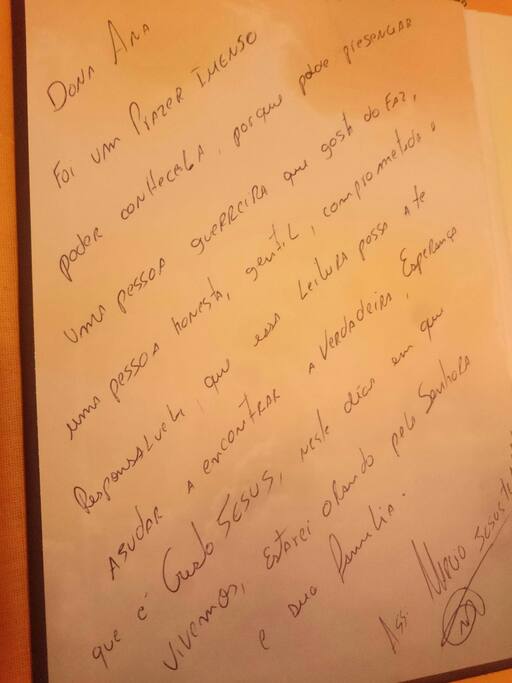 Dona Ana
Foi um Prazer Imenso
poder conhecela, porque pode presenciar
uma pessoa guerreira que gosta do Faz,
uma pessoa honesta, gentil, comprometada e
Responsalvel, que essa Leitura possa a te
ajudar a encontrar a Verdadeira, Esperança
que é Cristo Jesus, neste dias em que
vivemos, Estarei Orando pela Senhora
e sua Familia.
Ass. Marcio Jesus